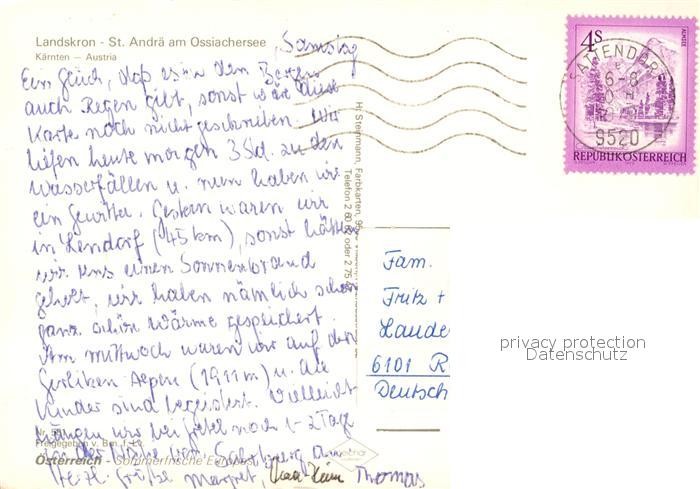 Landskron - St. Andrä am Ossiachersee
Kärnten — Austria
Samstag
Ein Glück, daß es in den Bergen
auch Regen gibt, sonst wäre diese
Karte noch nicht geschrieben. Wir
liefen heute morgen 3 Std. zu den
Wasserfällen u. nun haben wir
ein Gewitter. Gestern waren wir
in Lendorf (45 km), sonst hätten
wir uns einen Sonnenbrand
geholt, wir haben nämlich schon
ganz schön Wärme gespeichert.
Am Mittwoch waren wir auf den
Gerlitzen Alpen (1911 m) u. die
Kinder sind begeistert. Vielleicht
hängen wir bei noch 1-2 Tage
in der Nähe von Salzburg an.
Herzl. Grüße Margret, Thomas
Nr.
Freigegeben v. Bm. f.
Österreich - Sommerfrische Europas
H. Steinmann, Farbkarten, 95
Telefon 2 60 62 oder 2 75
4S
ALMSEE
REPUBLIK ÖSTERREICH
SATTENDORF
6-8
9520
Fam.
Fritz +
Laude
6101 R
Deutsch
privacy protection
Datenschutz